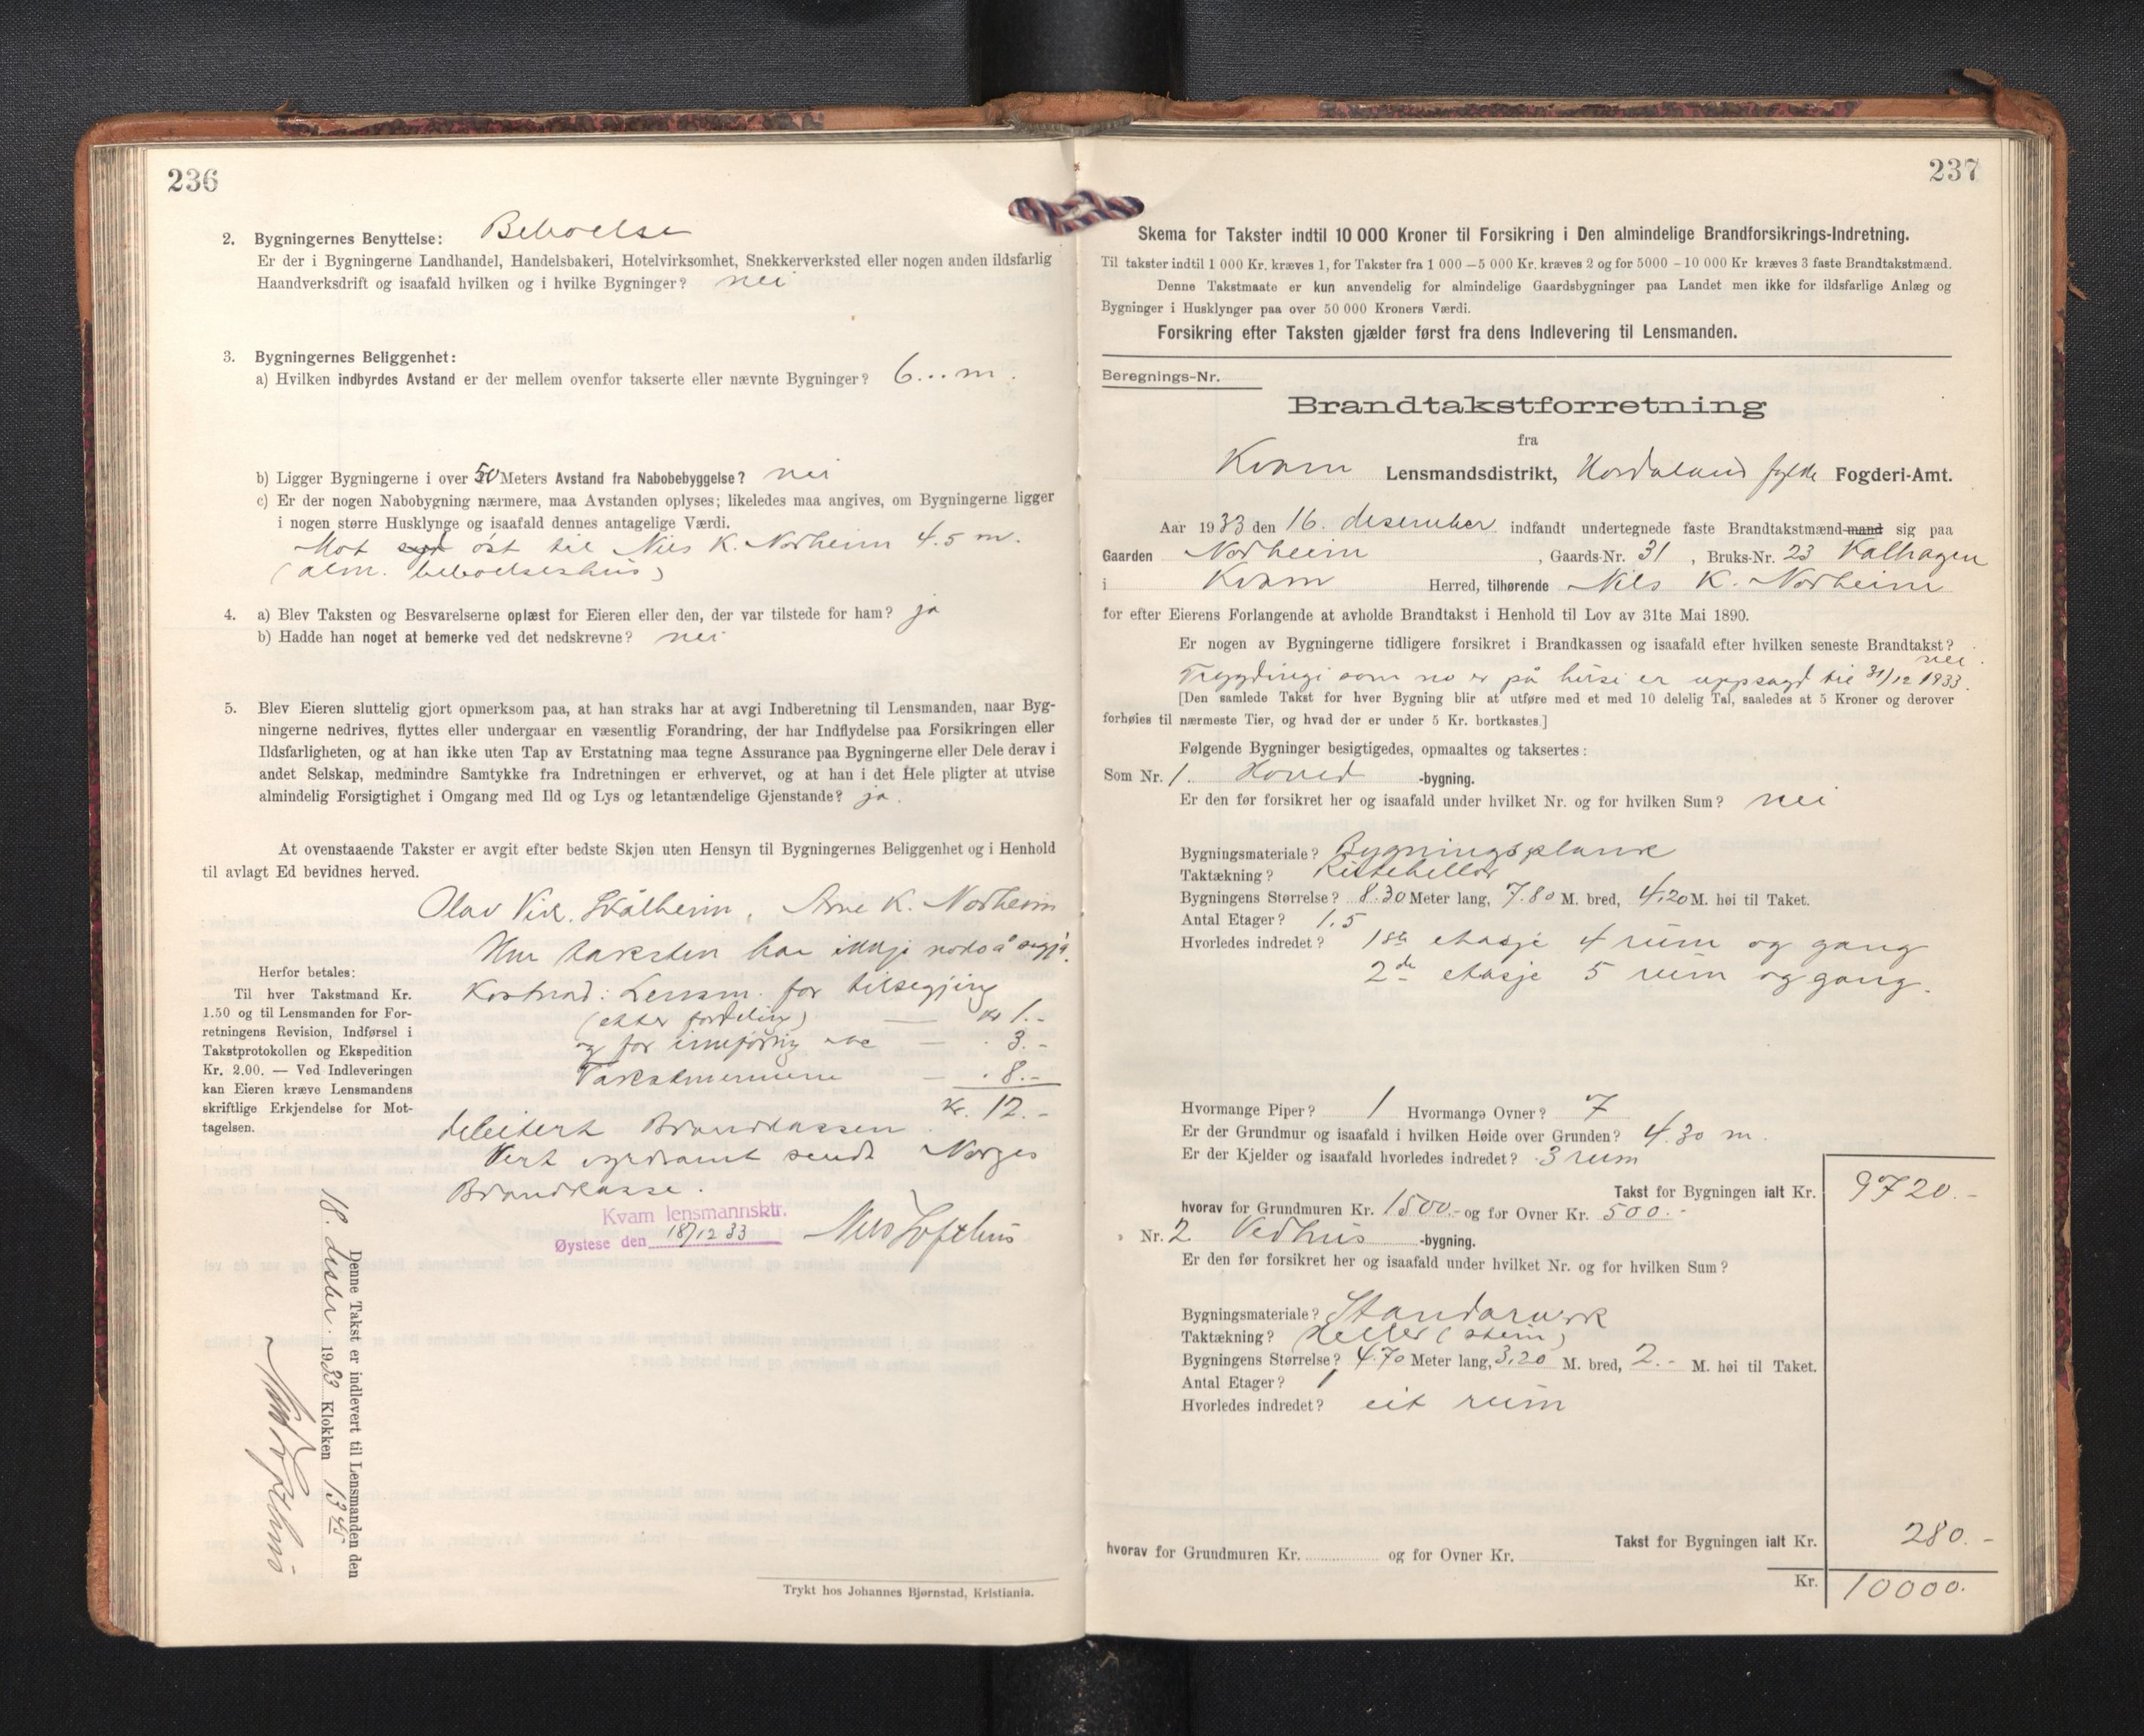 236
2. Bygningernes Benyttelse: Beboelse
Er der i Bygningerne Landhandel, Handelsbakeri, Hotelvirksomhet, Snekkerverksted eller nogen anden ildsfarlig
Haandverksdrift og isaafald hvilken og i hvilke Bygninger? nei
3. Bygningernes Beliggenhet:
a) Hvilken indbyrdes Avstand er der mellem ovenfor takserte eller nævnte Bygninger? 6...m.
b) Ligger Bygningerne i over 50 Meters Avstand fra Nabobebyggelse? nei
c) Er der nogen Nabobygning nærmere, maa Avstanden oplyses; likeledes maa angives, om Bygningerne ligger
i nogen større Husklynge og isaafald dennes antagelige Værdi.
Mot øst til Nils K. Norheim 4.5 m.
(alm. beboelseshus)
4. a) Blev Taksten og Besvarelserne oplæst for Eieren eller den, der var tilstede for ham? ja
b) Hadde han noget at bemerke ved det nedskrevne? nei
5. Blev Eieren sluttelig gjort opmerksom paa, at han straks har at avgi Indberetning til Lensmanden, naar Byg-
ningerne nedrives, flyttes eller undergaar en væsentlig Forandring, der har Indflydelse paa Forsikringen eller
Ildsfarligheten, og at han ikke uten Tap av Erstatning maa tegne Assurance paa Bygningerne eller Dele derav i
andet Selskap, medmindre Samtykke fra Indretningen er erhvervet, og at han i det Hele pligter at utvise
almindelig Forsigtighet i Omgang med Ild og Lys og letantændelige Gjenstande? ja.
At ovenstaaende Takster er avgit efter bedste Skjøn uten Hensyn til Bygningernes Beliggenhet og i Henhold
til avlagt Ed bevidnes herved.
Olav Vik. Skålheim, Arne K. Norheim
Um taksten har ikkje noko å segja.
Kostnad: Lensm. for tilsegjing
(etter fordeling) — kr 1.-
og for innføring — . 3.-
Takstmennene — . 8.-
Kr. 12.-
debitert Brandkassen.
Vert sendt Norges
Brandkasse.
Kvam lensmannsktr.
Øystese den 18/12 33 Nils Tofthus
Herfor betales:
Til hver Takstmand Kr.
1.50 og til Lensmanden for For-
retningens Revision, Indførsel i
Takstprotokollen og Ekspedition
Kr. 2.00. — Ved Indleveringen
kan Eieren kræve Lensmandens
skriftlige Erkjendelse for Mot-
tagelsen.
Denne Takst er indlevert til Lensmanden den
18. desbr. 1933 Klokken 13 45
Nils Tofthus
Trykt hos Johannes Bjørnstad, Kristiania.
237
Skema for Takster indtil 10 000 Kroner til Forsikring i Den almindelige Brandforsikrings-Indretning.
Til takster indtil 1 000 Kr. kræves 1, for Takster fra 1 000 — 5 000 Kr. kræves 2 og for 5000 - 10 000 Kr kræves 3 faste Brandtakstmænd.
Denne Takstmaate er kun anvendelig for almindelige Gaardsbygninger paa Landet men ikke for ildsfarlige Anlæg og
Bygninger i Husklynger paa over 50 000 Kroners Værdi.
Forsikring efter Taksten gjælder først fra dens Indlevering til Lensmanden.
Beregnings-Nr.
Brandtakstforretning
fra
Kvam Lensmandsdistrikt, Hordaland fylke Fogderi-Amt.
Aar 1933 den 16. desember indfandt undertegnede faste Brandtakstmænd-mand sig paa
Gaarden Norheim, Gaards-Nr. 31, Bruks-Nr. 23 Kalhagen
i Kvam Herred, tilhørende Nils K. Norheim
for efter Eierens Forlangende at avholde Brandtakst i Henhold til Lov av 31te Mai 1890.
Er nogen av Bygningerne tidligere forsikret i Brandkassen og isaafald efter hvilken seneste Brandtakst?
nei.
Trygdingi som no er på husi er uppsagd til 31/12 1933.
[Den samlede Takst for hver Bygning blir at utføre med et med 10 delelig Tal, saaledes at 5 Kroner og derover
forhøies til nærmeste Tier, og hvad der er under 5 Kr. bortkastes.]
Følgende Bygninger besigtigedes, opmaaltes og taksertes:
Som Nr. 1. Hoved -bygning.
Er den før forsikret her og isaafald under hvilket Nr. og for hvilken Sum? nei
Bygningsmateriale? Bygningsplank
Taktækning? Ristehellor
Bygningens Størrelse? 8.30 Meter lang, 7.80 M. bred, 4.20 M. høi til Taket.
Antal Etager? 1.5
Hvorledes indredet? 1ste etasje 4 rum og gang
2de etasje 5 rum og gang.
Hvormange Piper? 1 Hvormange Ovner? 7
Er der Grundmur og isaafald i hvilken Høide over Grunden? 4.30 m.
Er der Kjelder og isaafald hvorledes indredet? 3 rum
Takst for Bygningen ialt Kr. 9720.-
hvorav for Grundmuren Kr. 1500.- og for Ovner Kr. 500.-
» Nr. 2 Vedhus -bygning.
Er den før forsikret her og isaafald under hvilket Nr. og for hvilken Sum?
Bygningsmateriale? Standarverk
Taktækning? Heller (stein)
Bygningens Størrelse? 4.70 Meter lang, 3.20 M. bred, 2.- M. høi til Taket.
Antal Etager? 1
Hvorledes indredet? eit rum
Takst for Bygningen ialt Kr. 280.-
hvorav for Grundmuren Kr. og for Ovner Kr.
Kr. 10000.